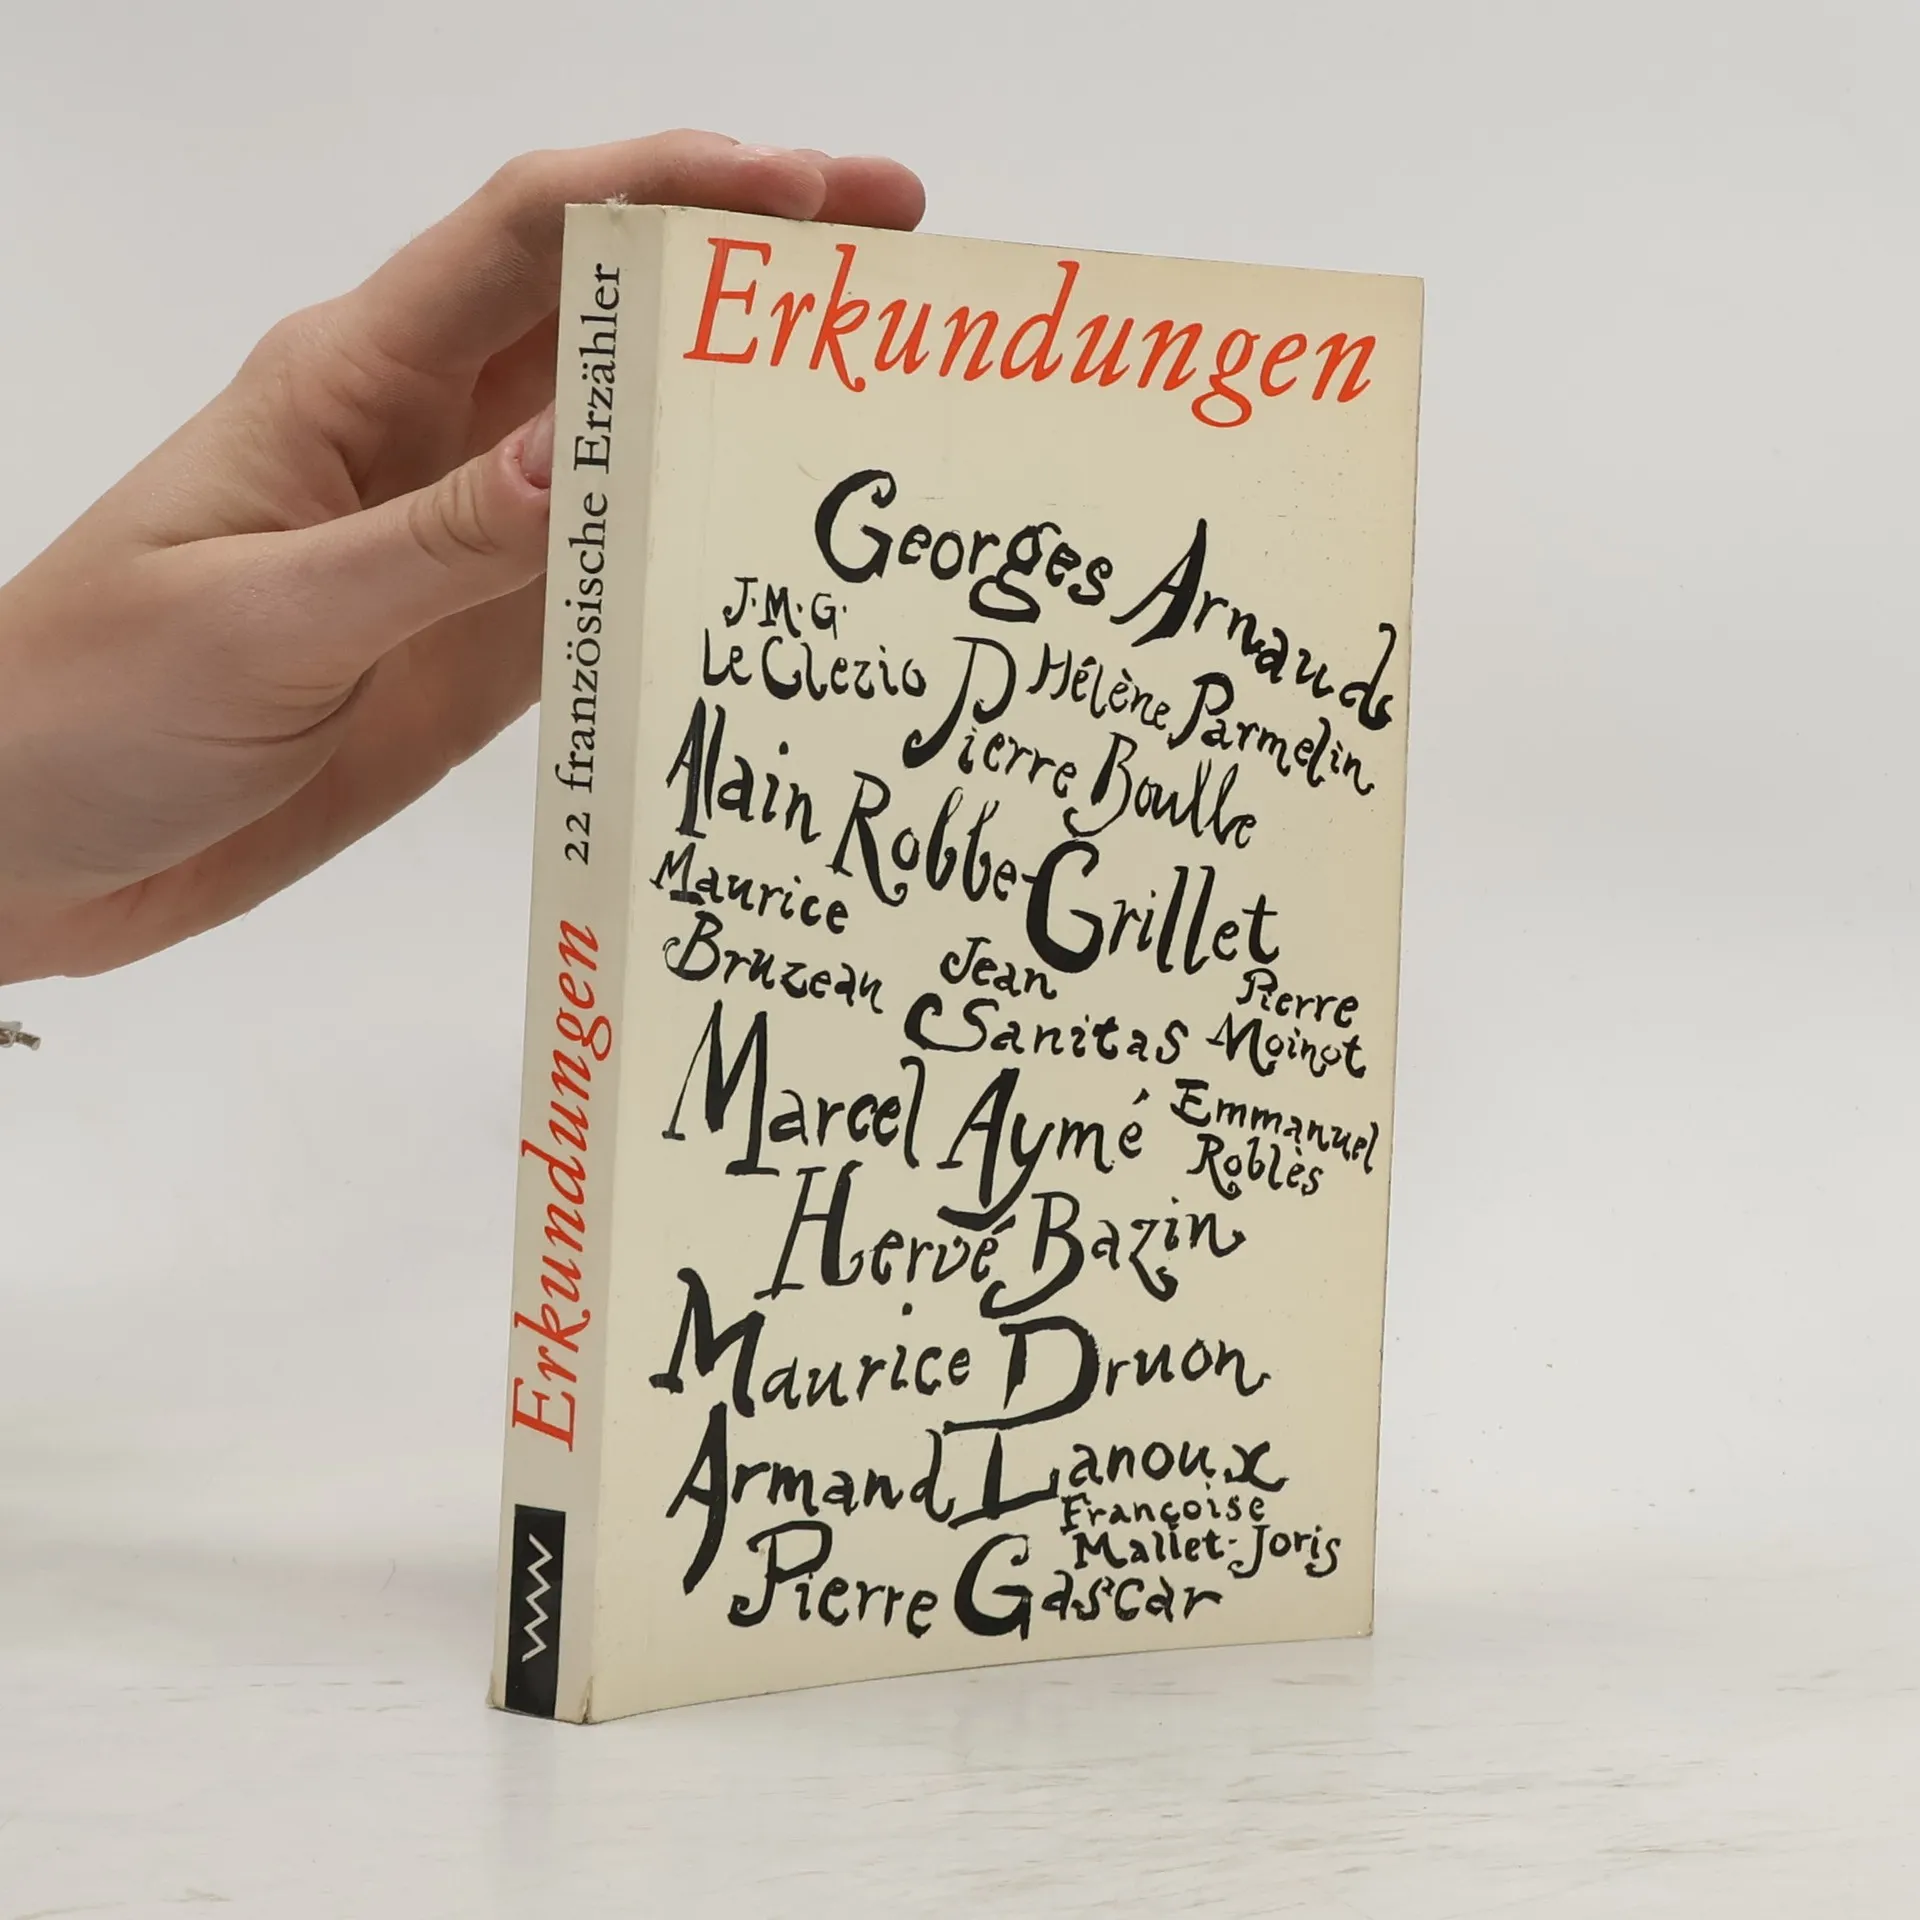 Erkundungen
Georges Arnaud
J.M.G.
Le Clezio
Hélène Parmelin
Pierre Boulle
Alain Robbe-Grillet
Maurice
Bruzeau
Jean
Sanitas
Pierre
Moinot
Marcel Aymé
Emmanuel
Roblès
Hervé Bazin
Maurice Druon
Armand Lanoux
Françoise
Mallet-Joris
Pierre Gascar
Erkundungen 22 französische Erzähler